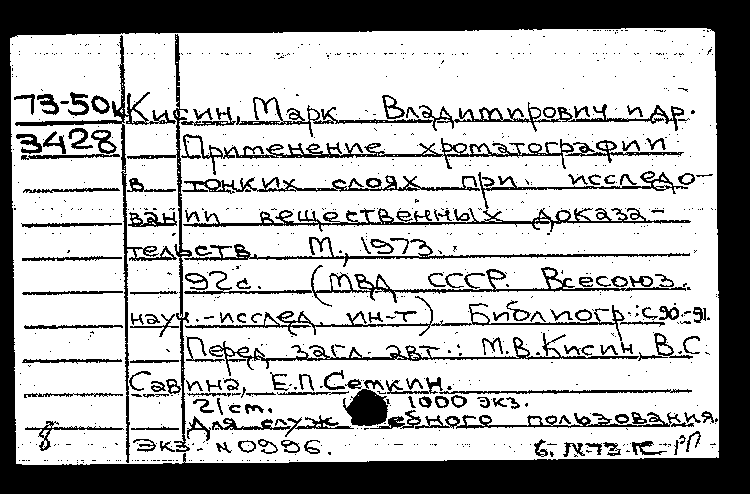 73-50к Кисин, Марк Владимирович и др.
3428 Применение хроматографии
в тонких слоях при исследо-
вании вещественных доказа-
тельств. М., 1973.
92с. (МВД СССР. Всесоюз.
науч.-исслед. ин-т). Библиогр.: с. 90-91.
Перед загл. авт.: М.В. Кисин, В.С.
Савина, Е.П. Семкин.
21 см. 1000 экз.
Для служебного пользования.
8 Экз. N 0996. 6. IV-73